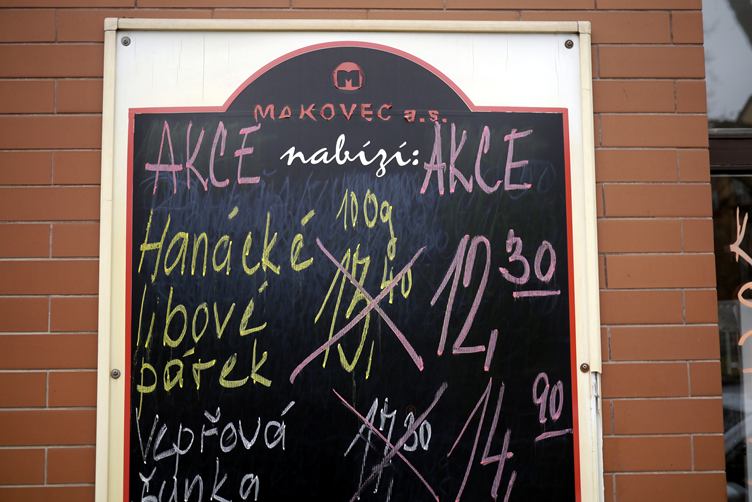 M
MAKOVEC a.s.
AKCE nabízí: AKCE
Hanácké 100g
libové 15,40 12,30
párek
Vepřová 17,30 14,90
šunka